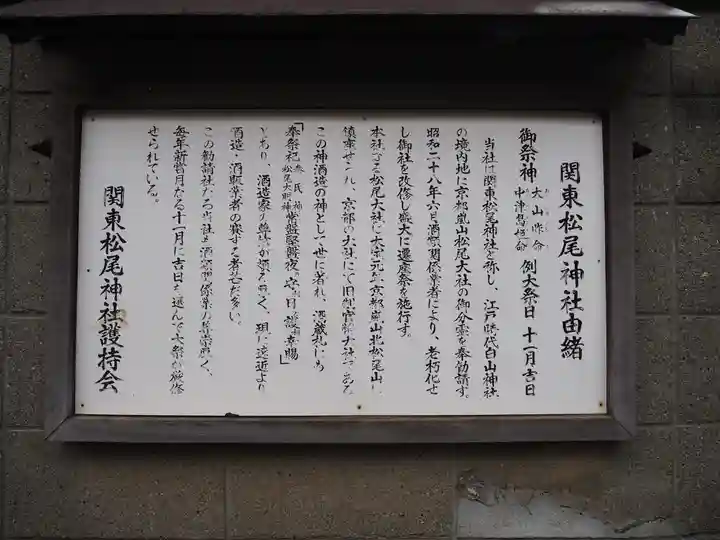 関東松尾神社由緒
御祭神 大山咋命 中津島姫命 例大祭日 十一月吉日
当社は関東松尾神社と称し、江戸時代白山神社
の境内地に京都嵐山松尾大社の御分霊を奉勧請す。
昭和二十八年六月酒類関係業者により、老朽化せ
し御社を改修し盛大に遷座祭を施行す。
本社である松尾大社は大宝元年京都嵐山北松尾山に
鎮座せられ、京都の大社にて旧官幣大社である
この神酒造の神として世に著れ、酒蔵札にも
「奉祭祀 秦氏神 松尾大明神 常盤堅磐夜守日護幸賜」
とあり、酒造家の尊崇が頗る厚く、現に遠近より
酒造・酒販業者の賽する者甚だ多い。
この勧請社たる当社も酒類関係業の尊崇厚く、
毎年新嘗月なる十一月に吉日を選んで大祭が施修
せられている。
関東松尾神社護持会